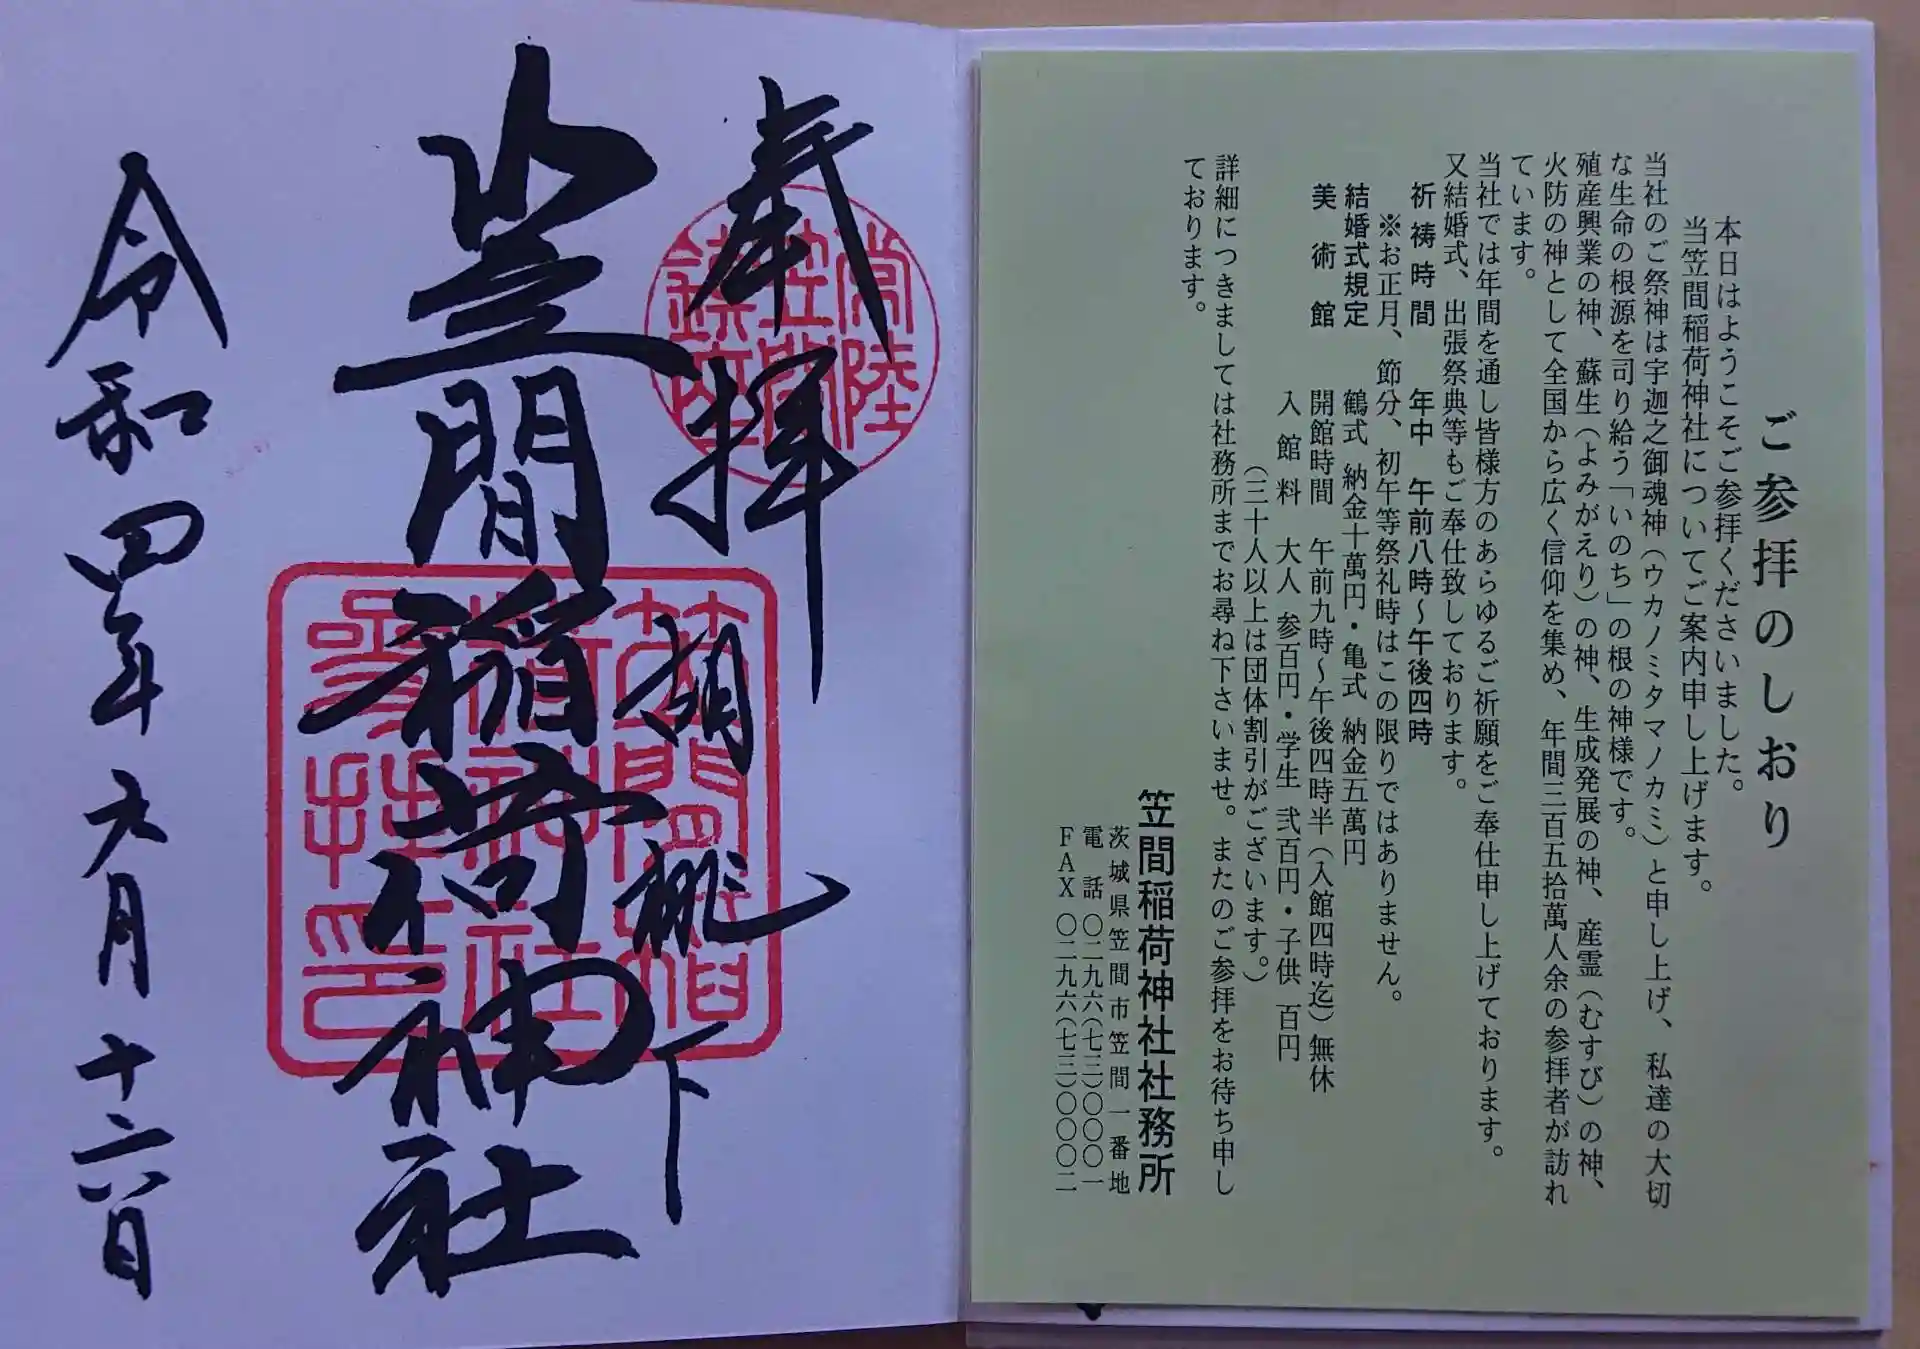 ご参拝のしおり
本日はようこそご参拝くださいました。
当笠間稲荷神社についてご案内申し上げます。
当社のご祭神は宇迦之御魂神（ウカノミタマノカミ）と申し上げ、私達の大切
な生命の根源を司り給う「いのち」の根の神様です。
殖産興業の神、蘇生（よみがえり）の神、生成発展の神、産霊（むすび）の神、
火防の神として全国から広く信仰を集め、年間三百五拾萬人余の参拝者が訪れ
ています。
当社では年間を通し皆様方のあらゆるご祈願をご奉仕申し上げております。
又結婚式、出張祭典等もご奉仕致しております。
祈祷時間 年中 午前八時～午後四時
※お正月、節分、初午等祭礼時はこの限りではありません。
結婚式規定 鶴式 納金十萬円・亀式 納金五萬円
美術館 開館時間 午前九時～午後四時半（入館四時迄）無休
入館料 大人 参百円・学生 弐百円・子供 百円
（三十人以上は団体割引がございます。）
詳細につきましては社務所までお尋ね下さいませ。またのご参拝をお待ち申し
ております。
笠間稲荷神社社務所
茨城県笠間市笠間一番地
電話 〇二九六（七三）〇〇〇一
FAX 〇二九六（七三）〇〇〇二
奉拝
常陸
笠間
鎮座
胡桃下
笠間稲荷神社
笠間稲
荷神社
参拝印
令和四年六月十六日